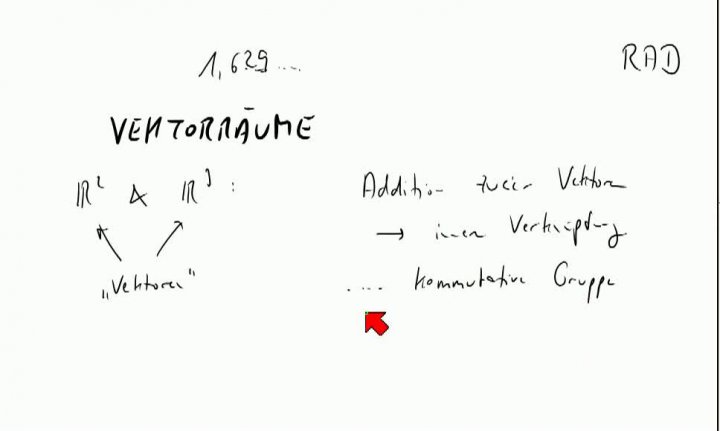 1,629...
RAD
VEKTORRÄUME
ℝ² & ℝ³ :
"Vektoren"
Addition zweier Vektoren
→ innere Verknüpfung
.... kommutative Gruppe